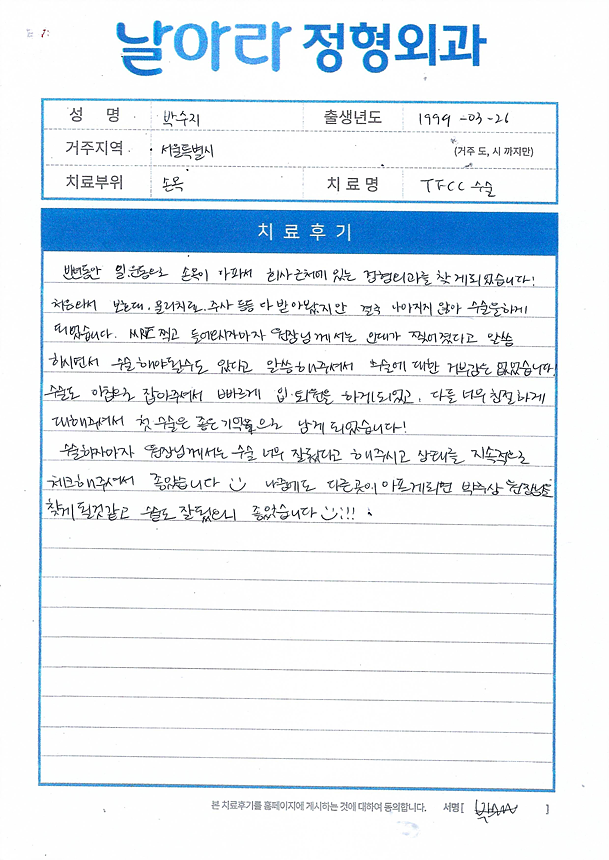 날아라 정형외과
성 명 박수지 출생년도 1999-03-26
거주지역 서울특별시 (거주 도, 시 까지만)
치료부위 손목 치료명 TFCC 수술
치료후기
반년동안 일.운동으로 손목이 아파서 회사 근처에 있는 정형외과를 찾게되었습니다!
처음와서 보는데, 물리치료, 주사 등등 다 받아봤지만 결국 나아지지 않아 수술을하게
되었습니다. MRI 찍고 들어오시자마자 원장님께서는 인대가 찢어졌다고 말씀
하시면서 수술해야될수도 있다고 말씀해주셔서 수술에 대한 거부감도 없었습니다.
수술도 아침으로 잡아주셔서 빠르게 입.퇴원을 하게되었고, 다들 너무 친절하게
대해주셔서 첫 수술은 좋은기억으로 남게 되었습니다!
수술하자마자 원장님께서는 수술 너무 잘됐다고 해주시고 상태를 지속적으로
체크해주셔서 좋았습니다 나중에도 다른곳이 아프게되면 박주상 원장님을
찾게 될것같고 수술도 잘됐으니 좋았습니다 !!!
본 치료후기를 홈페이지에 게시하는 것에 대하여 동의합니다. 서명 [ ]